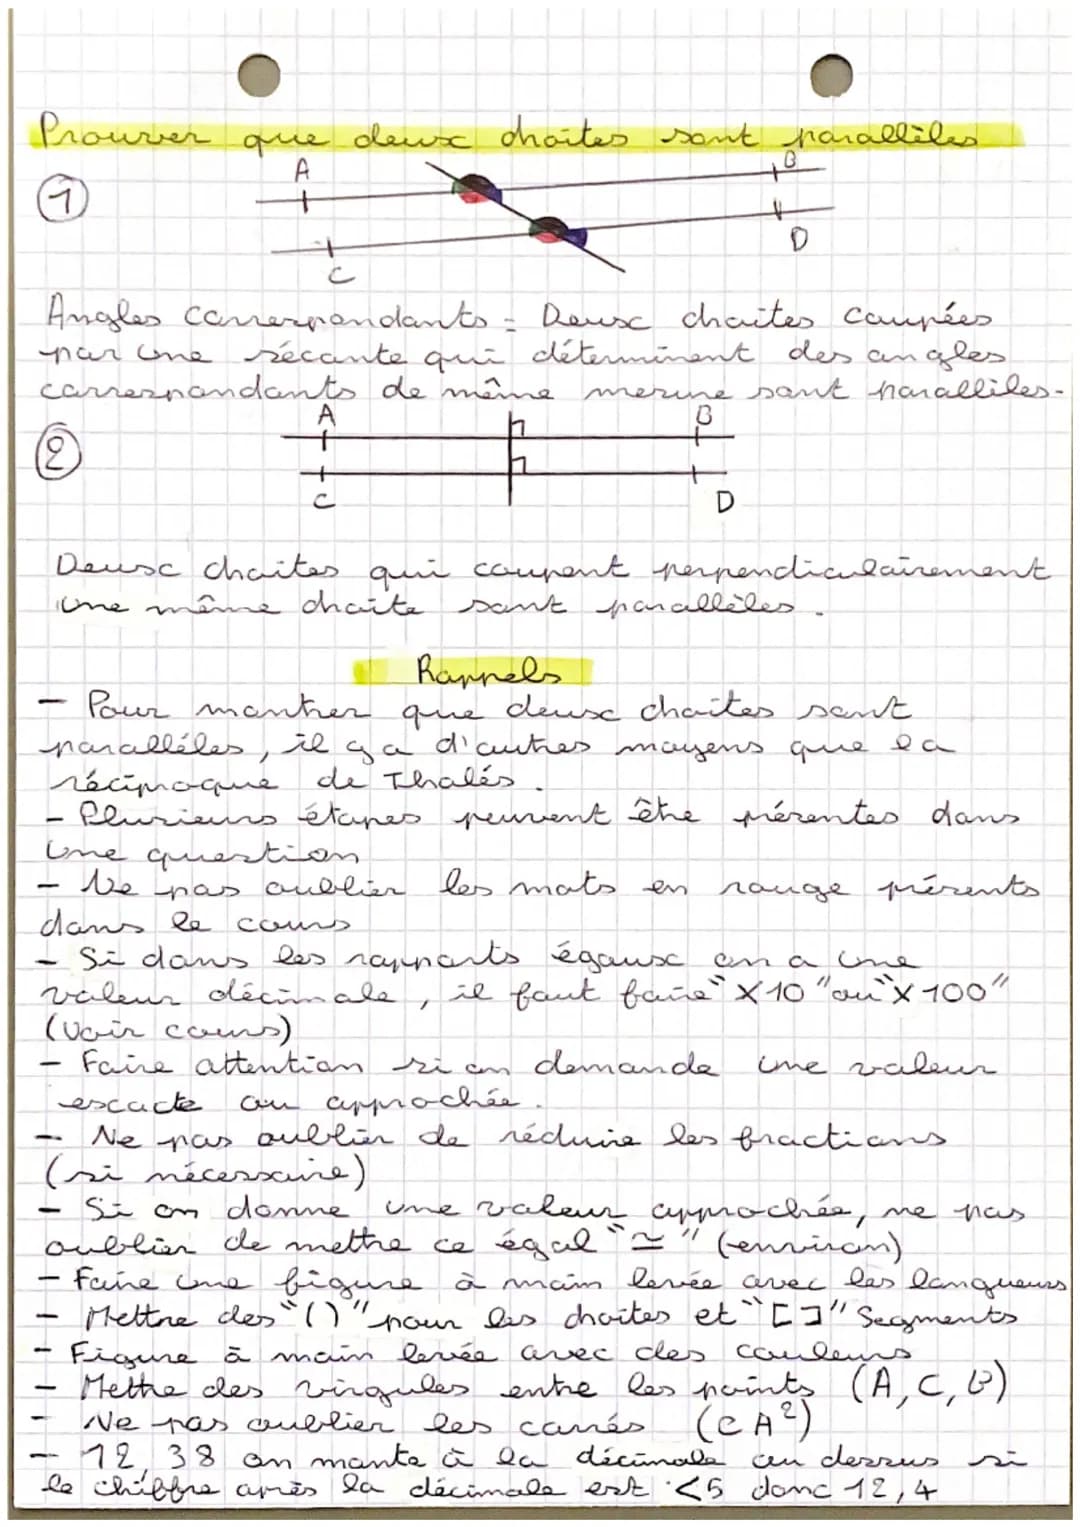 Prouver que deux droites sont parallèles
1
A
B
C
D
Angles correspondants = Deux droites coupées
par une sécante qui déterminent des angles
correspondants de même mesure sont parallèles.
2
A
B
C
D
Deux droites qui coupent perpendiculairement
une même droite sont parallèles.
Rappels
- Pour montrer que deux droites sont
parallèles, il y a d'autres moyens que la
réciproque de Thalés.
- Plusieurs étapes peuvent être présentes dans
une question
- Ne pas oublier les mots en rouge présents
dans le cours
- Si dans les rapports égaux on a une
valeur décimale, il faut faire "X10" ou "X100"
(voir cours)
- Faire attention si on demande une valeur
exacte ou approchée.
- Ne pas oublier de réduire les fractions
(si nécessaire)
- Si on donne une valeur approchée, ne pas
oublier de mettre ce égal "≃" (environ)
- Faire une figure à main levée avec les longueurs
- Mettre des "()" pour les droites et "[]" Segments
- Figure à main levée avec des couleurs
- Mettre des virgules entre les points (A, C, B)
- Ne pas oublier les carrés (CA²)
- 12,38 on monte à la décimale au dessus si
le chiffre après la décimale est <5 donc 12,4